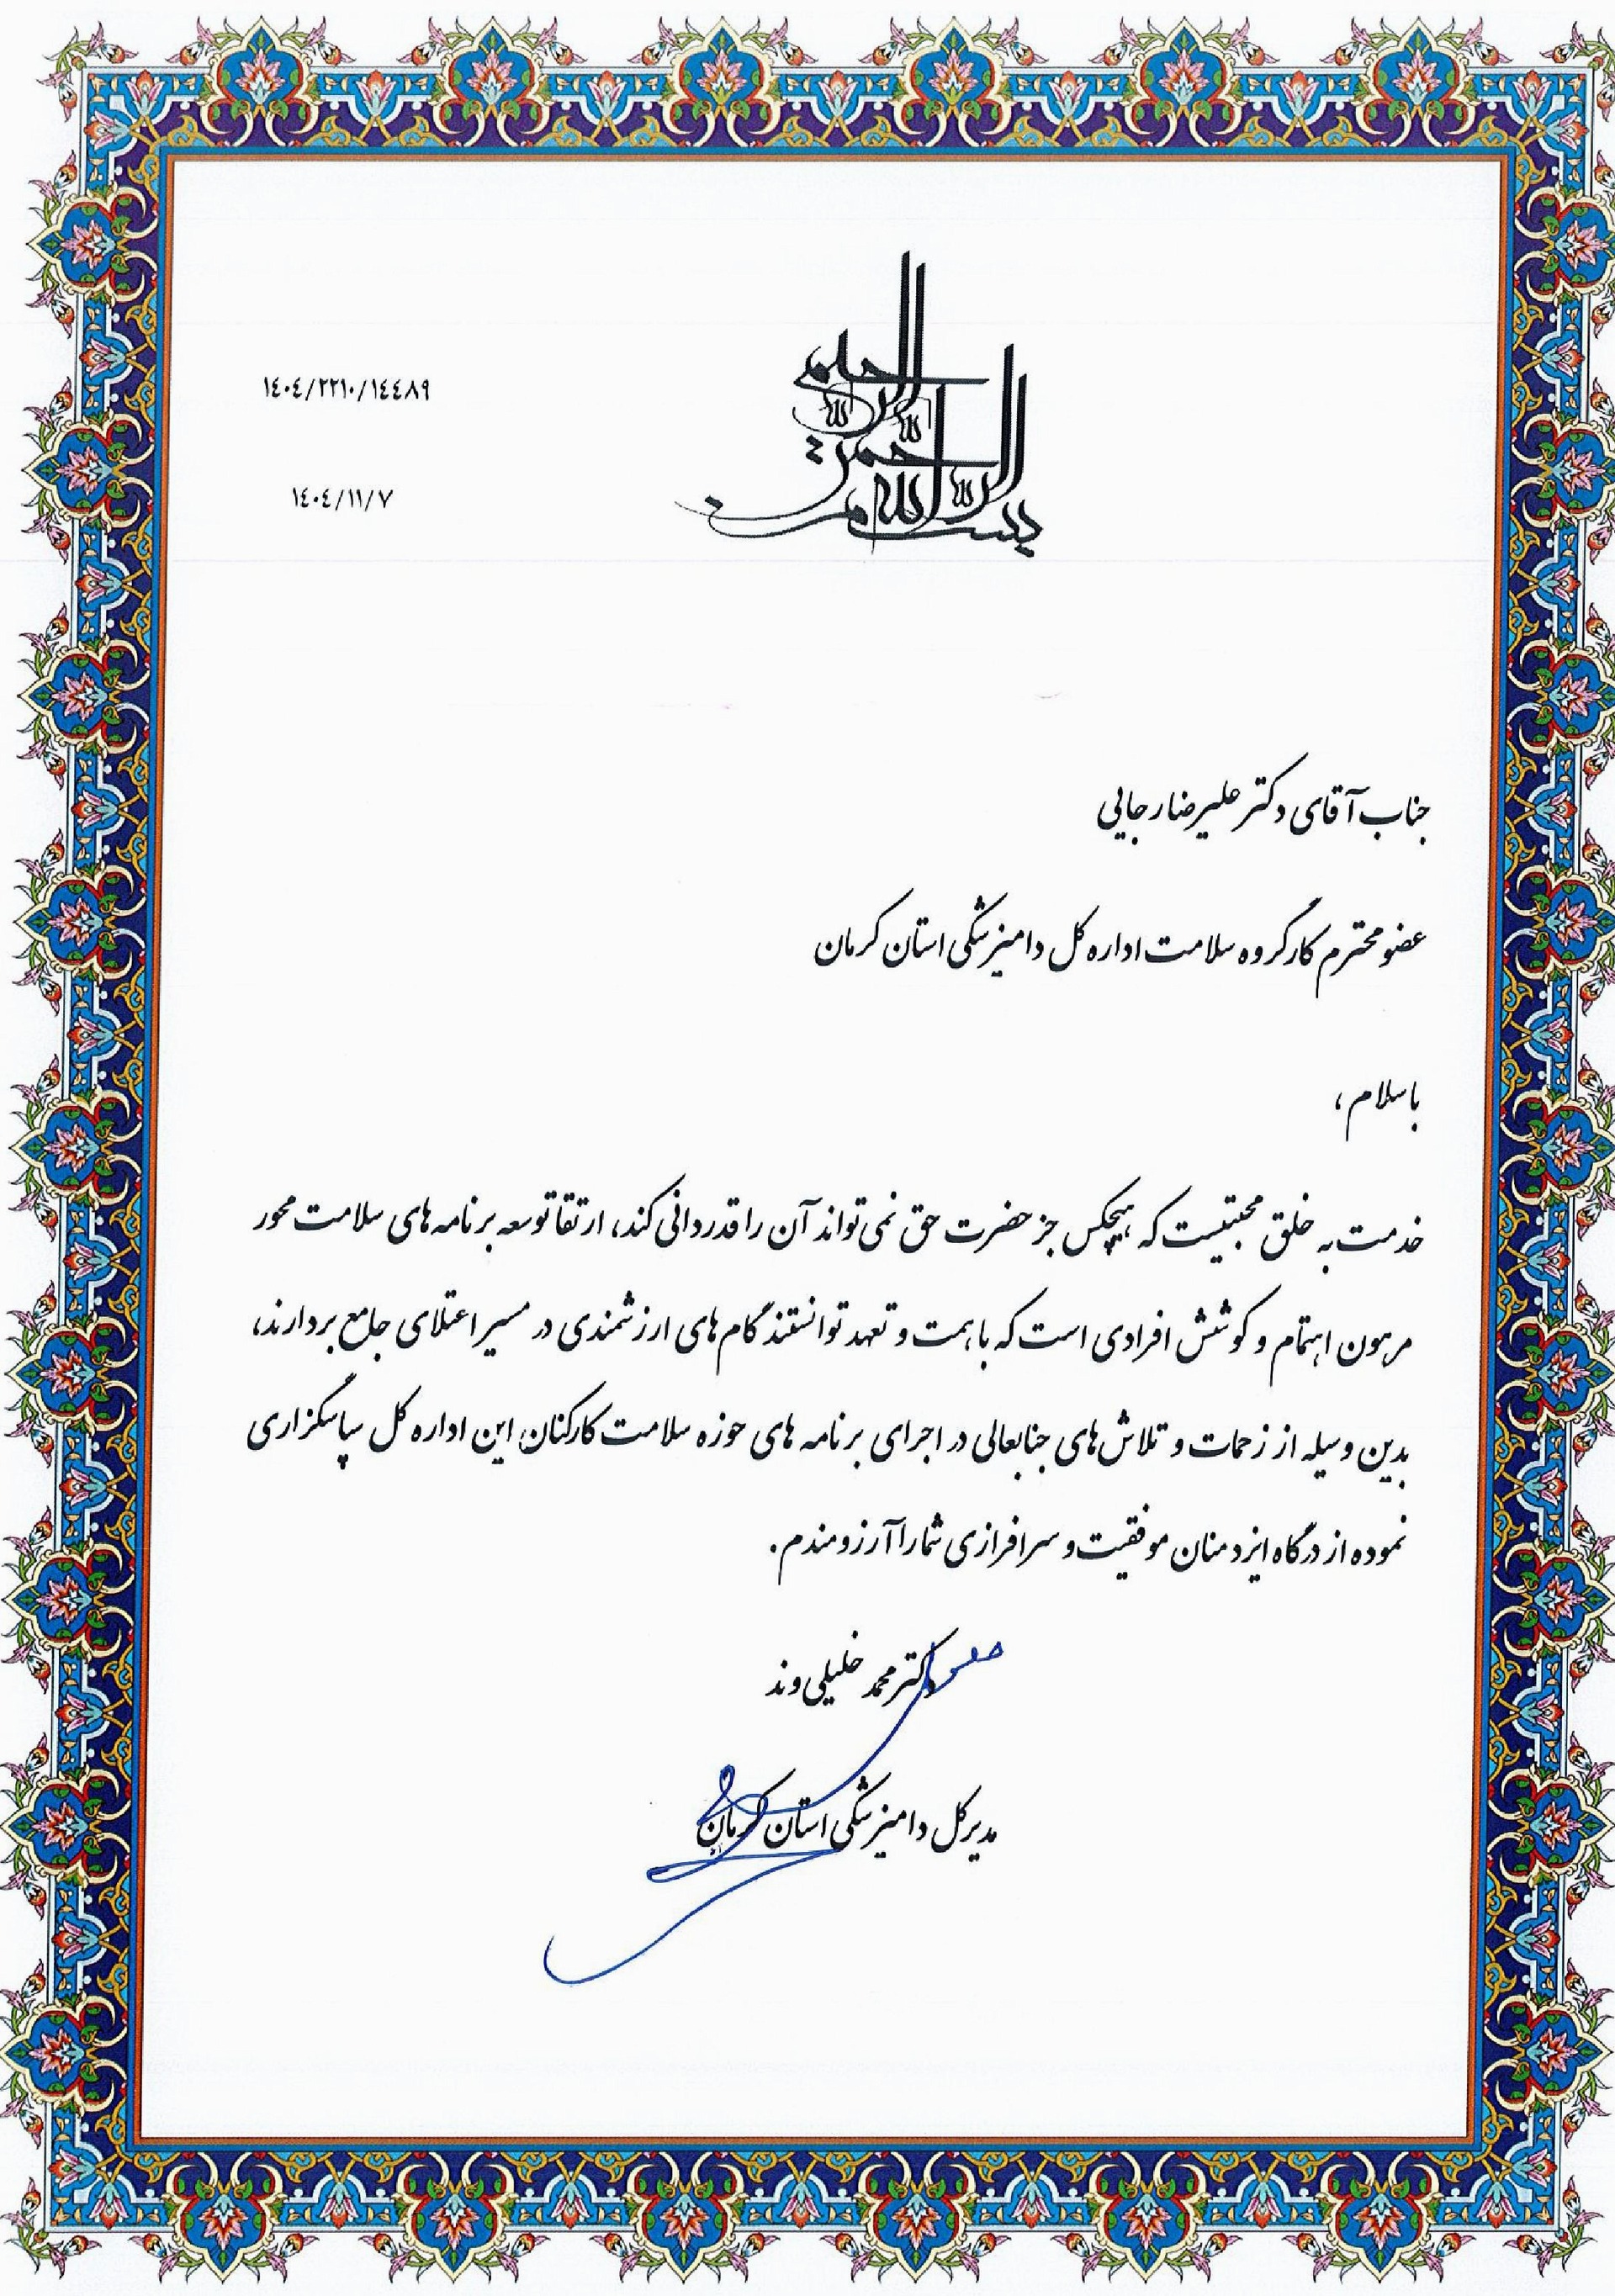 بسم الله الرحمن الرحیم
١٤٠٤/٢٢١٠/١٤٤٨٩
١٤٠٤/١١/٧
جناب آقای دکتر علیرضا رجایی
عضو محترم کارگروه سلامت اداره کل دامپزشکی استان کرمان
با سلام ،
خدمت به خلق محبتیست که هیچکس جز حضرت حق نمی‌تواند آن را قدردانی کند، ارتقا توسعه برنامه‌های سلامت محور
مرهون اهتمام و کوشش افرادی است که با همت و تعهد توانستند گام‌های ارزشمندی در مسیر اعتلای جامع بردارند،
بدین وسیله از زحمات و تلاش‌های جنابعالی در اجرای برنامه های حوزه سلامت کارکنان این اداره کل سپاسگزاری
نموده از درگاه ایزد منان موفقیت و سرافرازی شما را آرزومندم.
دکتر محمد خلیلی وند
مدیرکل دامپزشکی استان کرمان